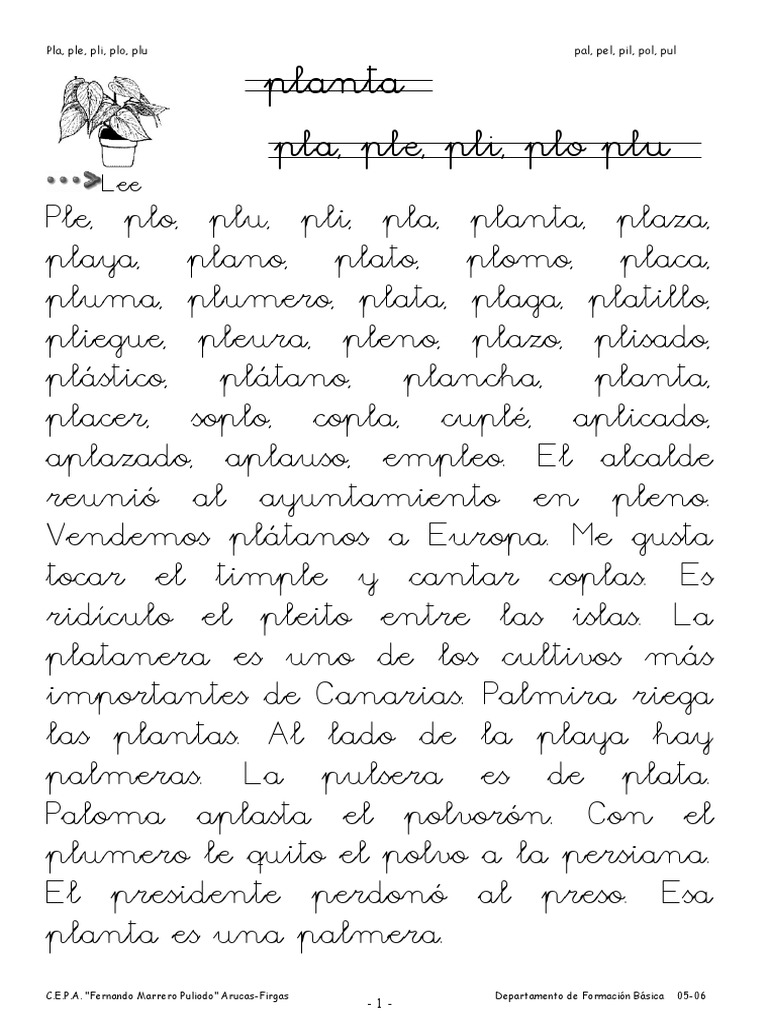 Pla, ple, pli, plo, plu pal, pel, pil, pol, pul
planta
pla, ple, pli, plo plu
Lee
Ple, plo, plu, pli, pla, planta, plaza,
playa, plano, plato, plomo, placa,
pluma, plumero, plata, plaga, platillo,
pliegue, pleura, pleno, plazo, plisado,
plástico, plátano, plancha, planta,
placer, soplo, copla, cuplé, aplicado,
aplazado, aplauso, empleo. El alcalde
reunió al ayuntamiento en pleno.
Vendemos plátanos a Europa. Me gusta
tocar el timple y cantar coplas. Es
ridículo el pleito entre las islas. La
platanera es uno de los cultivos más
importantes de Canarias. Palmira riega
las plantas. Al lado de la playa hay
palmeras. La pulsera es de plata.
Paloma aplasta el polvorón. Con el
plumero le quito el polvo a la persiana.
El presidente perdonó al preso. Esa
planta es una palmera.
C.E.P.A. "Fernando Marrero Puliodo" Arucas-Firgas Departamento de Formación Básica 05-06
- 1 -